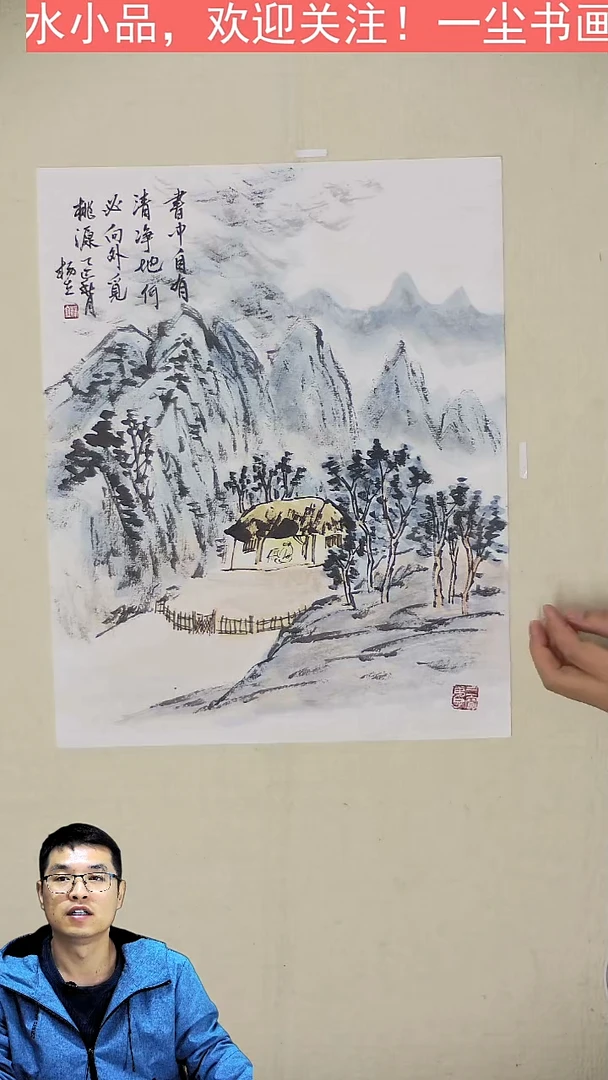 水小品，欢迎关注！一尘书画
書中自有
清净地何
必向外覓
桃源